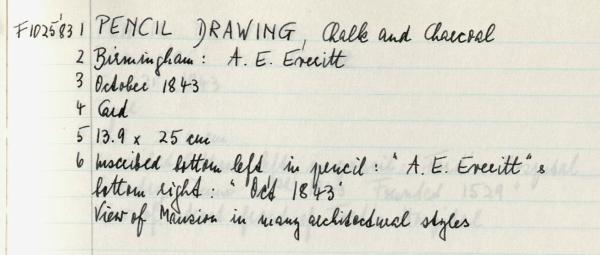 F1025'83 1 PENCIL DRAWING, Chalk and Charcoal
2 Birmingham: A. E. Everitt
3 October 1843
4 Card
5 13.9 x 25 cm
6 Inscribed bottom left in pencil: "A. E. Everitt" &
bottom right: "Oct 1843"
View of Mansion in many architectural styles